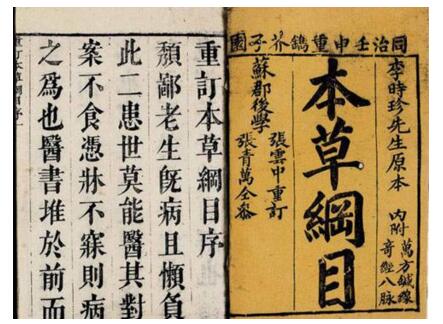 同治壬申重鐫芥子園
李時珍先生原本
內附萬方鍼線
奇經八脉
本草綱目
張雲中重訂
蘇郡後學
張青萬仝參
重訂本草綱目序
頹鄙老生旣病且懶負
此二患世莫能醫其對
案不食憑牀不寐則病
之為也醫書堆於前而
重訂本草綱目序